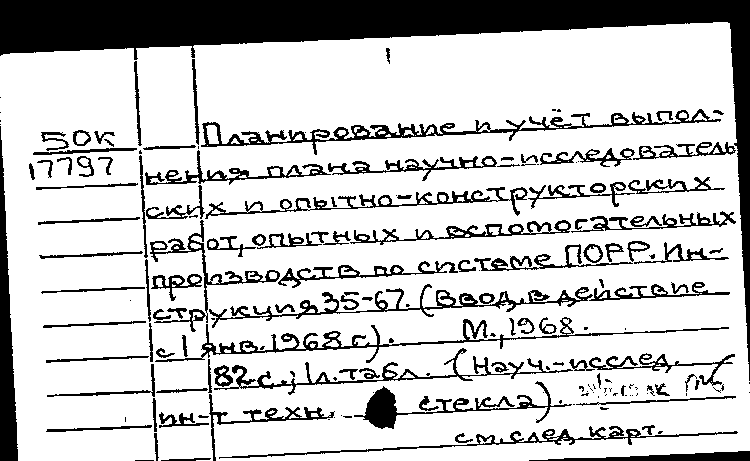 50К
17797
Планирование и учёт выпол-
нения плана научно-исследователь
ских и опытно-конструкторских
работ, опытных и вспомогательных
производств по системе ПОРР. Ин-
струкция 35-67. (Ввод. в действие
с 1 янв. 1968 г). М., 1968.
82 с.; 1 л. табл. (Науч.-исслед.
ин-т техн. стекла).
см. след. карт.